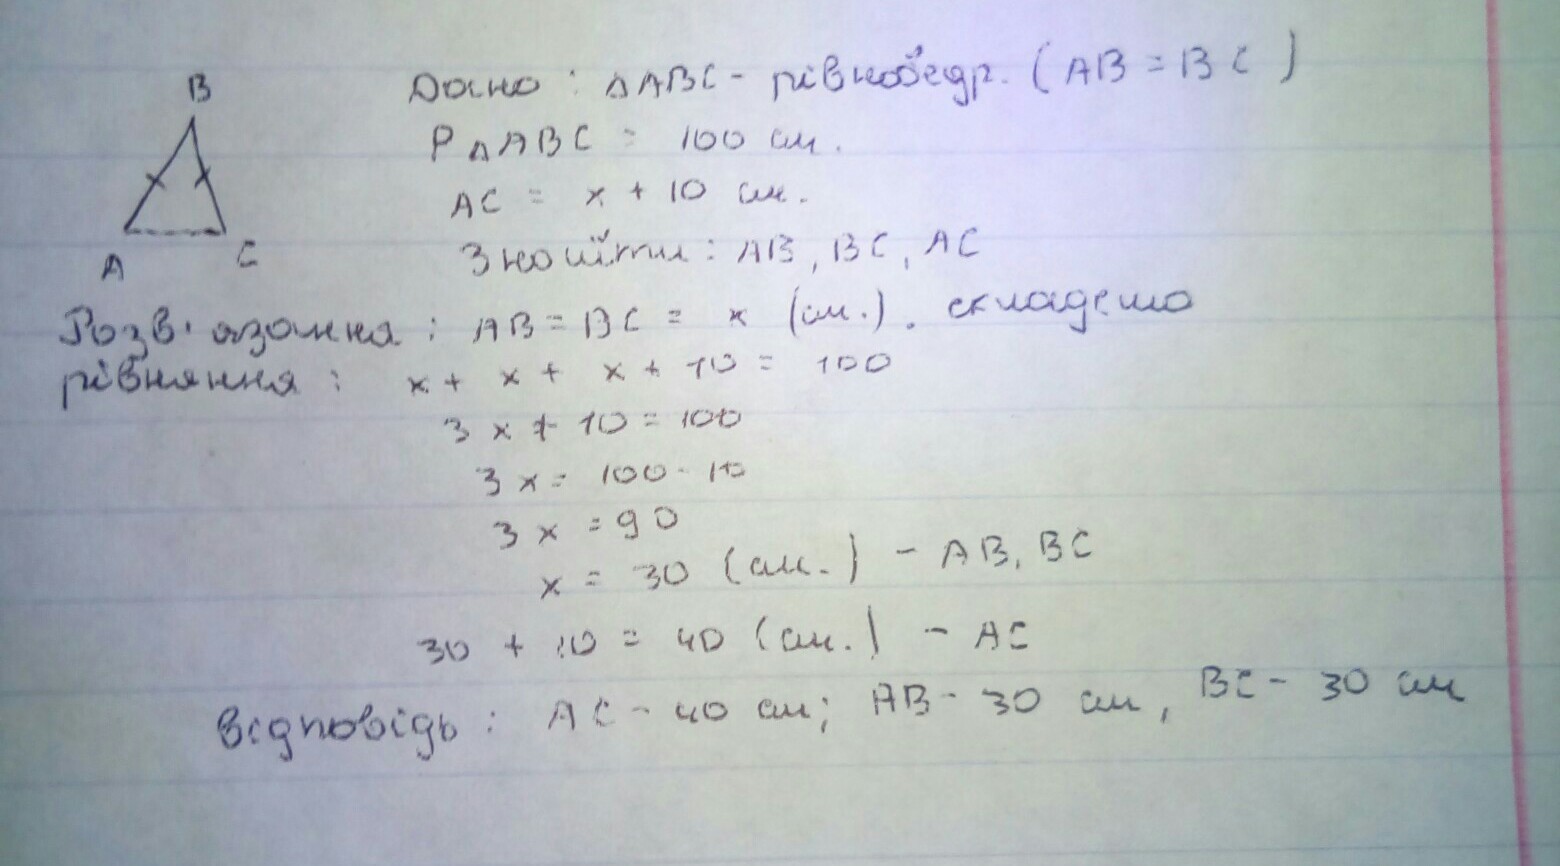 B
A
C
Дано : ΔABC - рівнобедр. ( AB = BC )
P ΔABC = 100 см.
AC = x + 10 см.
Знайти : AB , BC , AC
Розв'язання : AB = BC = x (см.) . складемо
рівняння : x + x + x + 10 = 100
3 x + 10 = 100
3 x = 100 - 10
3 x = 90
x = 30 (см.) - AB, BC
30 + 10 = 40 (см.) - AC
Відповідь : AC - 40 см; AB - 30 см , BC - 30 см